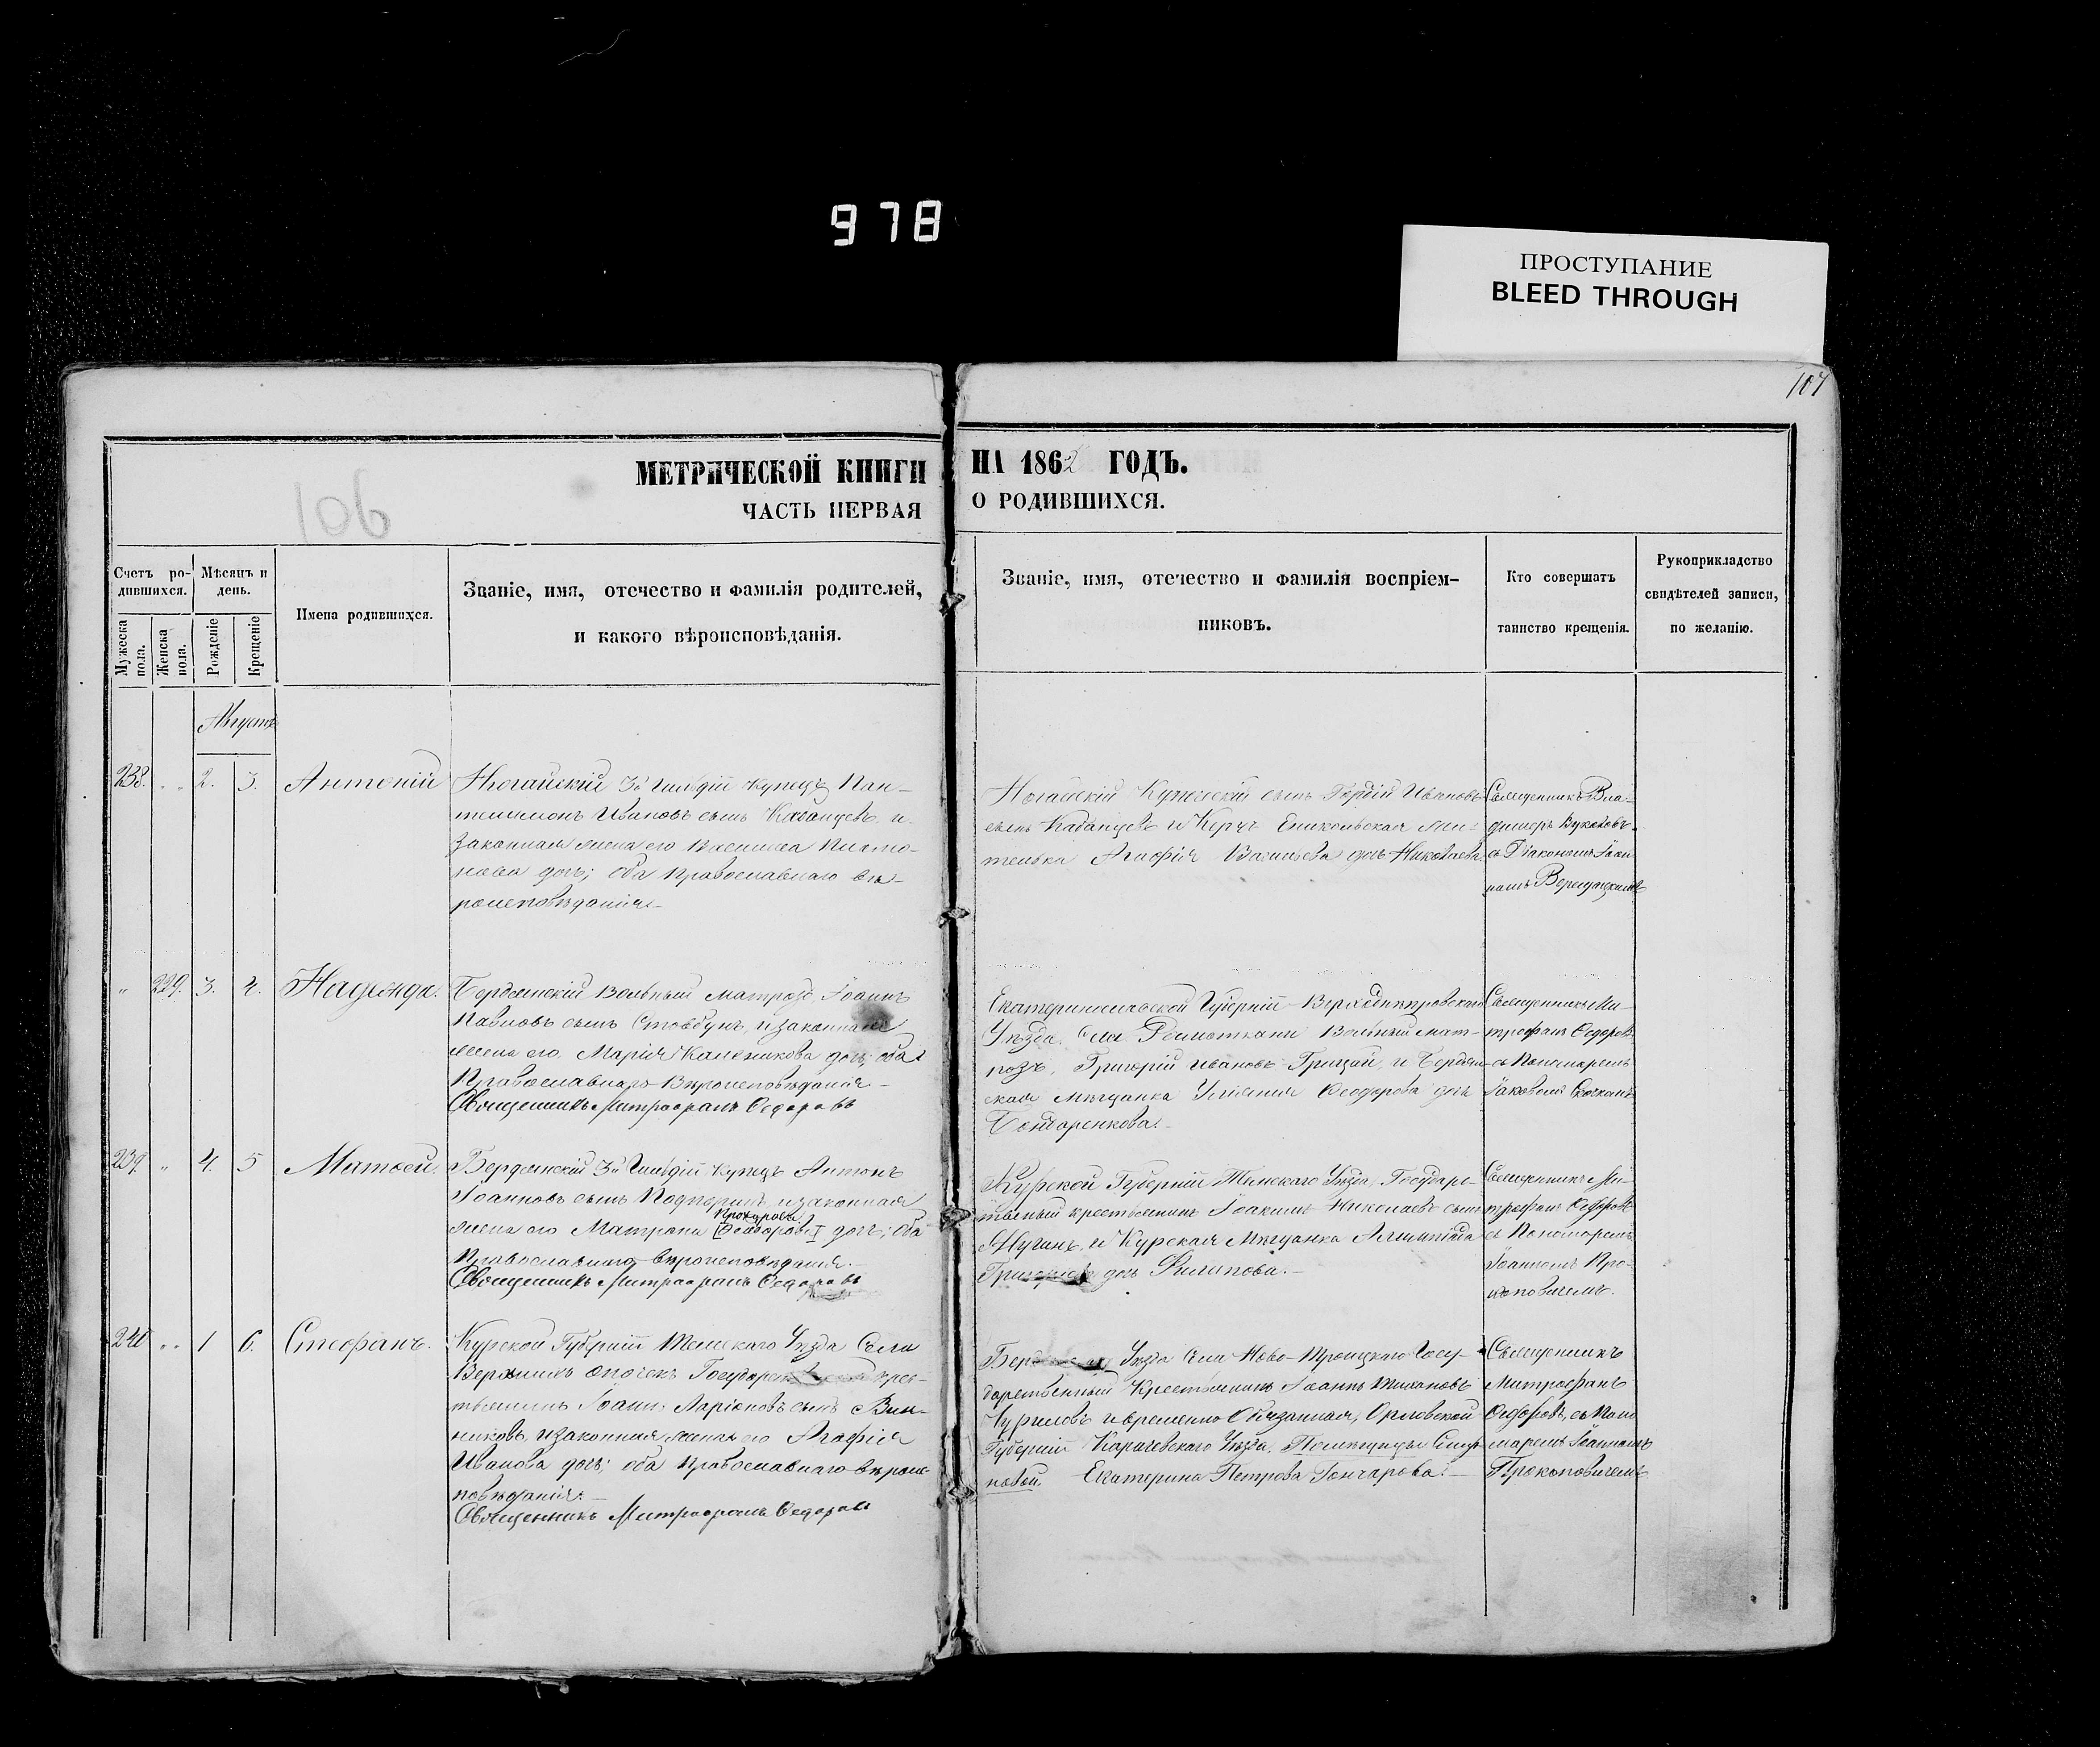 978
ПРОСТУПАНИЕ
BLEED THROUGH
107
106
МЕТРИЧЕСКОЙ КНИГИ
ЧАСТЬ ПЕРВАЯ
НА 1862 ГОДЪ.
О РОДИВШИХСЯ.
Счетъ ро-
дившихся.
Мѣсяцъ и
день.
Мужеска
пола.
Женска
пола.
Рожденіе
Крещеніе
Имена родившихся.
Званіе, имя, отечество и фамилія родителей,
и какого вѣроисповѣданія.
Званіе, имя, отечество и фамилія воспріем-
никовъ.
Кто совершатъ
таинство крещенія.
Рукоприкладство
свидѣтелей записи,
по желанію.
Августъ
238. " 2. 3. Антоній
Ногайскій 3й Гильдіи купецъ Пан-
телимонъ Ивановъ сынъ и
законная жена его Василиса
дочь; оба Православнаго вѣ-
роисповѣданія
Ногайскій Купеческій сынъ Гордій Ивановъ
сынъ и Керчь Еникольская
Агафія Васильева дочь Николаева
Священникъ Вла-
димеръ
съ Діакономъ Іоан-
номъ
" 229. 3. 4. Надежда.
Бердянскій Вольный матрозъ Іоаннъ
Павловъ сынъ Стовбунъ, и законная
жена его Марія Каленикова дочь; оба
Православнаго Вѣроисповѣданія
Священникъ Митрофанъ Федоровъ
Екатеринославской Губерніи Верходнѣпровскаго
Уѣзда, Села Вольный мат-
розъ, Григорій Ивановъ Грицай, и Бердян-
ская Мѣщанка Феодорова дочь
Бондаренкова.
Священникъ Ми-
трофанъ Федоровъ
съ Пономаремъ
Іаковомъ
239 " 4. 5 Матѳей.
Бердянскій 3й Гильдіи купецъ Антонъ
Іоанновъ сынъ и законная
Прохорова
жена его Матрона [Феодорова] дочь; оба
Православнаго вѣроисповѣданія.
Священникъ Митрофанъ Федоровъ
Курской Губерніи Тимскаго Уѣзда, Государс-
твеный крестьянинъ Іоакимъ Николаевъ сынъ
и Курская Мѣщанка
дочь Филипова.
Священникъ Ми-
трофанъ Федоровъ
съ Пономаремъ
Іоанномъ Про-
коповичемъ.
240 " 1 6. Стефанъ.
Курской Губерніи Уѣзда Села
Государственный крес-
тьянинъ Іоанн Ларіоновъ сынъ Вин-
никовъ, и законная жена его Агафія
Иванова дочь; оба Православнаго вѣроис-
повѣданія.
Священникъ Митрофанъ Федоровъ
Уѣзда Села Ново-Троицкаго Госу-
дарственный Крестьянинъ Іоаннъ
Чуриловъ и временно Обязанная, Орловской
Губерніи Карачевскаго Уѣзда, Помѣщицы
Екатерина Петрова Гончарова.
Священникъ
Митрофанъ
Федоровъ, съ Поно-
маремъ Іоанномъ
Прокоповичемъ